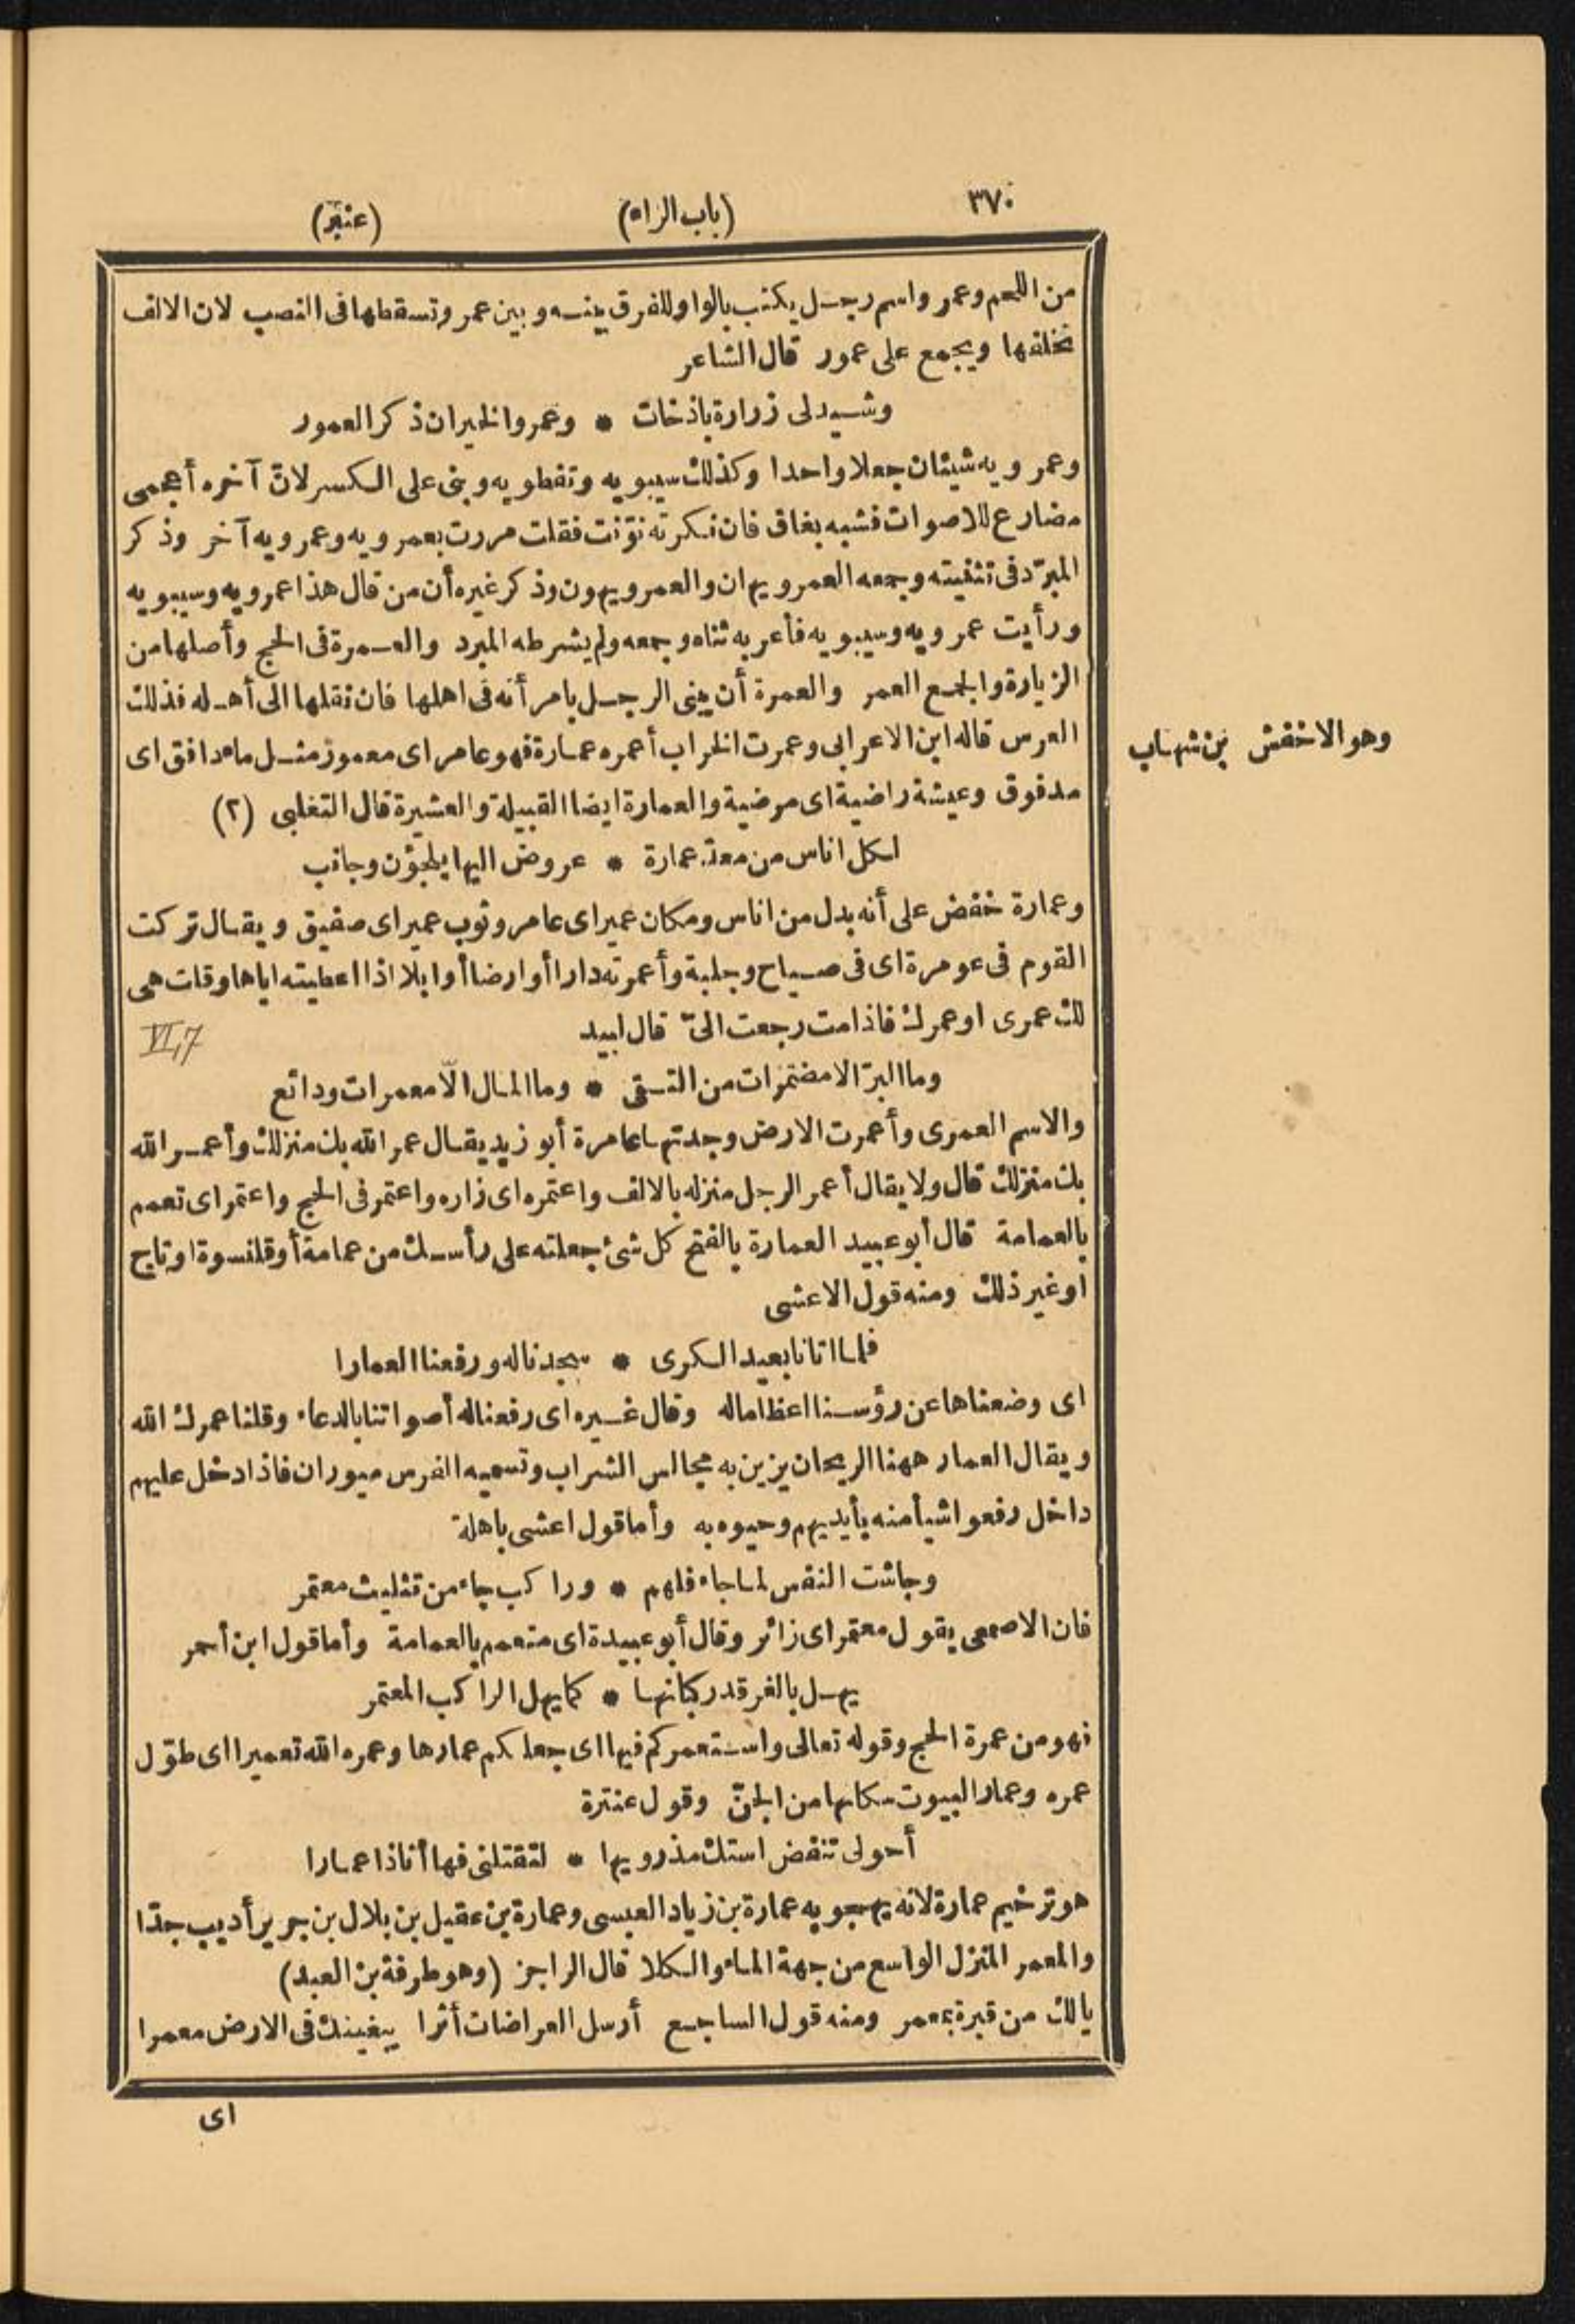 ٣٧٠
(باب الراء)
(عنبر)
من اللحم وعمرو اسم رجل يكتب بالواو للفرق بينه وبين عمر وتسقطها فى النصب لان الالف
تخلفها ويجمع على عمور قال الشاعر
وشيد لى زرارة باذخات * وعمرو الخير ان ذكر العمور
وعمرويه شيئان جعلا واحدا وكذلك سيبويه ونفطويه وبنى على الكسر لانّ آخره أعجمى
مضارع للاصوات فشبه بغاق فان نكرته نوّنت فقلت مررت بعمرويه وعمرويه آخر وذكر
المبرّد فى تثنيته وجمعه العمرويهان والعمرويهون وذكر غيره أن من قال هذا عمرويه وسيبويه
ورأيت عمرويه وسيبويه فأعربه ثناه وجمعه ولم يشرطه المبرد والعمرة فى الحج وأصلها من
الزيارة والجمع العمر والعمرة أن يبنى الرجل بامرأته فى اهلها فان نقلها الى أهله فذلك
العرس قاله ابن الاعرابى وعمرت الخراب أعمره عمارة فهو عامر اى معمور مثل ماء دافق اى
مدفوق وعيشة راضية اى مرضية والعمارة ايضا القبيلة والعشيرة قال التغلبى (٢)
لكل اناس من معدّ عمارة * عروض اليها يلجؤن وجانب
وعمارة خفض على أنه بدل من اناس ومكان عمير اى عامر وثوب عمير اى صفيق ويقال تركت
القوم فى عومرة اى فى صياح وجلبة وأعمرته دارا أو ارضا أو ابلا اذا اعطيته اياها وقلت هى
لك عمرى او عمرك فاذا مت رجعت الىّ قال لبيد
VI,7
وما البرّ الا مضمرات من التقى * وما المال الّا معمرات ودائع
والاسم العمرى وأعمرت الارض وجدتها عامرة أبو زيد يقال عمر الله بك منزلك وأعمر الله
بك منزلك قال ولا يقال أعمر الرجل منزله بالالف واعتمره اى زاره واعتمر فى الحج واعتمر اى تعمم
بالعمامة قال أبو عبيد العمارة بالفتح كل شئ جعلته على رأسك من عمامة أو قلنسوة او تاج
او غير ذلك ومنه قول الاعشى
فلما اتانا بعيد الكرى * سجدنا له ورفعنا العمارا
اى وضعناها عن رؤسنا اعظاما له وقال غيره اى رفعنا له أصواتنا بالدعاء وقلنا عمرك الله
ويقال العمار ههنا الريحان يزين به مجالس الشراب وتسميه الفرس ميوران فاذا دخل عليهم
داخل رفعوا شيأ منه بأيديهم وحيوه به وأما قول اعشى باهلة
وجاشت النفس لما جاء فلهم * وراكب جاء من تثليث معتمر
فان الاصمعى يقول معتمر اى زائر وقال أبو عبيدة اى متعمم بالعمامة وأما قول ابن أحمر
يهل بالفرقد ركبانها * كما يهل الراكب المعتمر
فهو من عمرة الحج وقوله تعالى واستعمركم فيها اى جعلكم عمارها وعمره الله تعميرا اى طوّل
عمره وعمار البيوت سكانها من الجنّ وقول عنترة
أحولى تنفض استك مذرويها * لتقتلنى فها أناذا عمارا
هو ترخيم عمارة لانه يهجو به عمارة بن زياد العبسى وعمارة بن عقيل بن بلال بن جرير أديب جدّا
والمعمر المنزل الواسع من جهة الماء والكلا قال الراجز (وهو طرفة بن العبد)
يالك من قبرة بمعمر ومنه قول الساجع أرسل العراضات أثرا يبغينك فى الارض معمرا
اى
وهو الاخفش بن شهاب